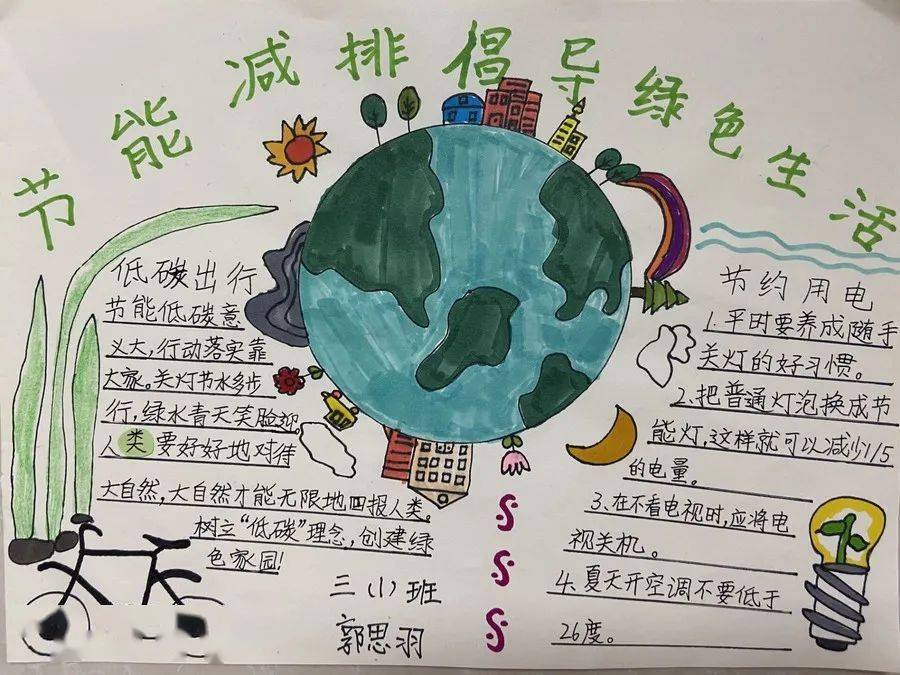 节能减排倡导绿色生活
低碳出行
节能低碳意
义大,行动落实靠
大家。关灯节水多步
行,绿水青天笑脸迎。
人类要好好地对待
大自然,大自然才能无限地回报人类。
树立“低碳”理念,创建绿
色家园!
三(1)班
郭思羽
节约用电
1.平时要养成随手
关灯的好习惯。
2.把普通灯泡换成节
能灯,这样就可以减少1/5
的电量。
3.在不看电视时,应将电
视关机。
4.夏天开空调不要低于
26度。